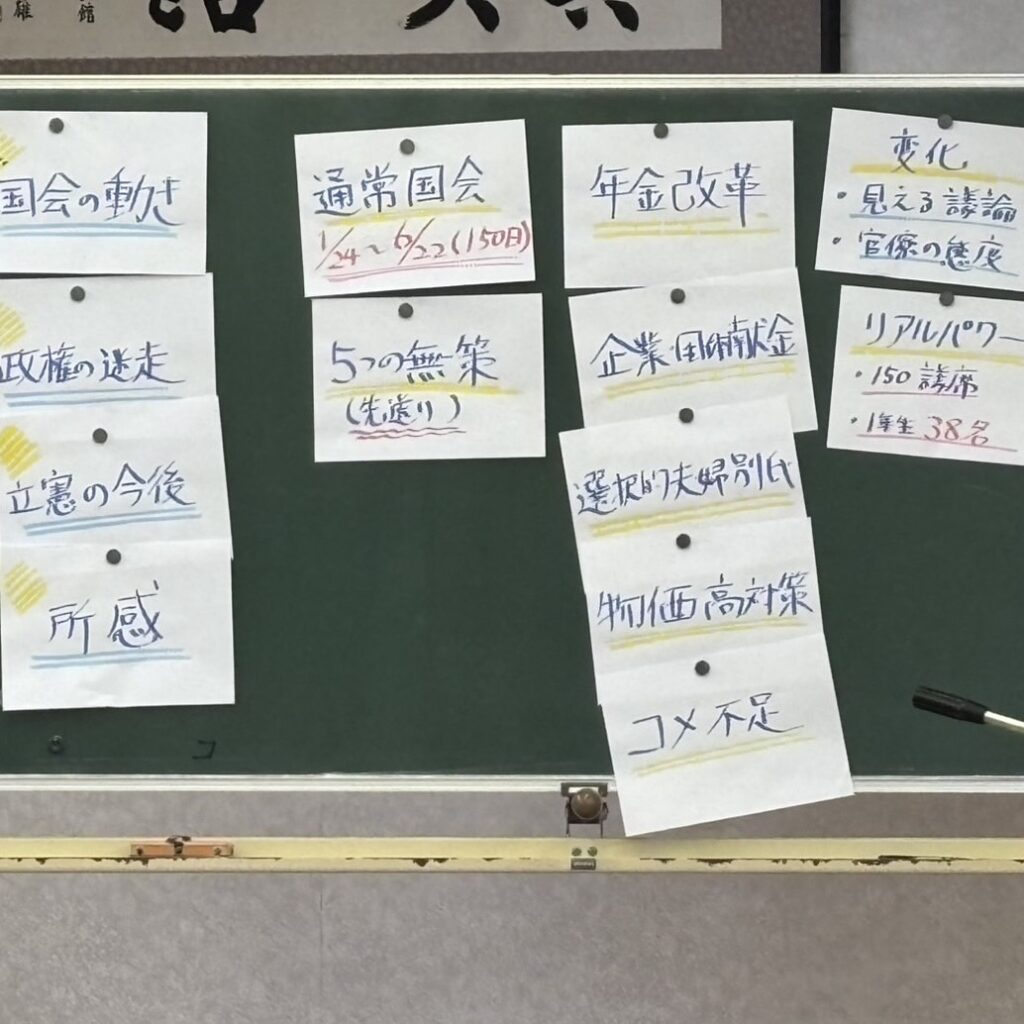 館
雄
国会の動き
政権の迷走
立憲の今後
所感
通常国会
1/24~6/22(150日)
5つの無策
(先送り)
年金改革
企業・団体献金
選択的夫婦別氏
物価高対策
コメ不足
変化
・見える議論
・官僚の態度
リアルパワー
・150議席
・1年生 38名